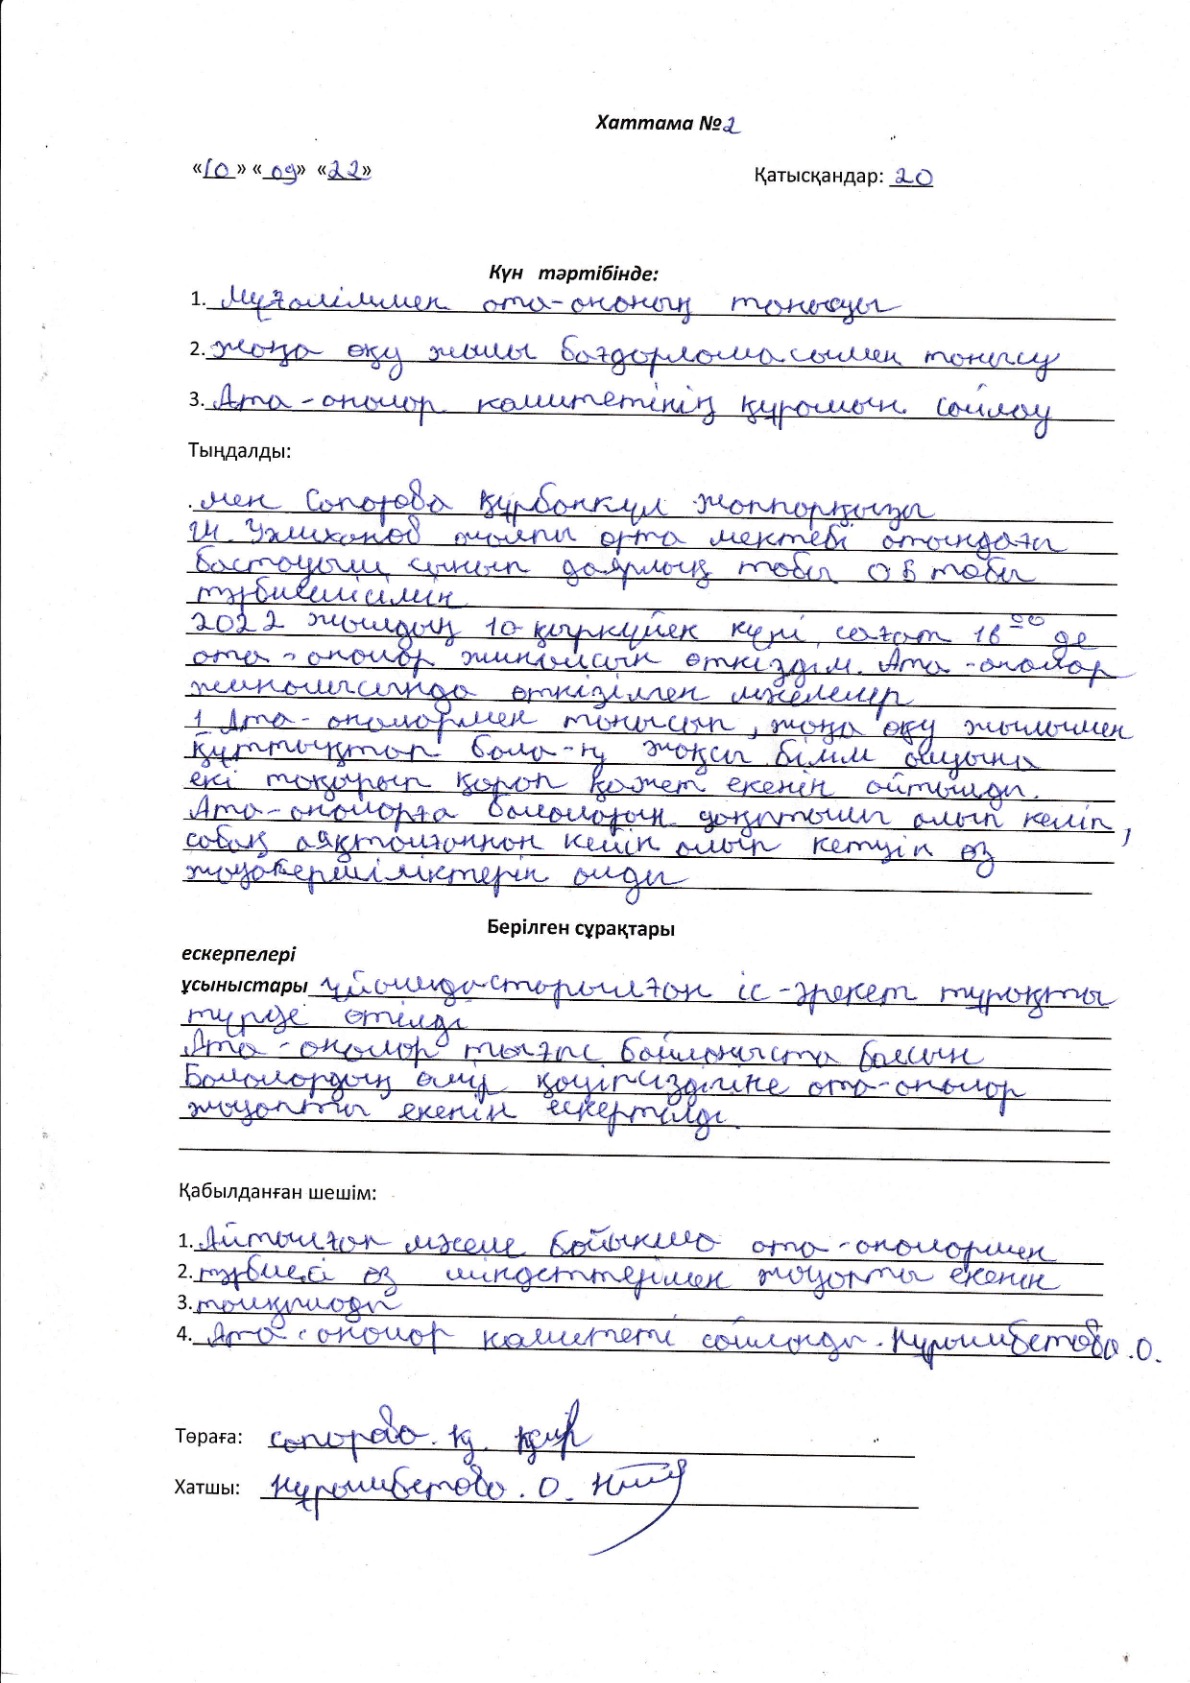 Хаттама №2
«10» «09» «22» Қатысқандар: 20
Күн тәртібінде:
1. Мұғаліммен ата-ананың танысуы
2. Жаңа оқу жылы бағдарламасымен танысу
3. Ата-аналар камитетінің құрамын сайлау
Тыңдалды:
мен Сапарова Құрбанкүл Жаппарқызы
Ш. Уәлиханов жалпы орта мектебі атындағы
бастауыш сынып даярлық тобы 0 Б тобы
тәрбиешісімін
2022 жылдың 10 қыркүйек күні сағат 16 00 де
ата-аналар жиналысын өткіздім. Ата-аналар
жиналысында өткізілген мәселелер
1 Ата-аналармен танысып, жаңа оқу жылымен
құттықтап бала-ң жақсы білім алуына
екі тақырып қарап қажет екенін айтылды.
Ата-аналарға балаларын уақытылы алып келіп,
сабақ аяқталғаннан кейін алып кетуін өз
жауапкершіліктерін алды
Берілген сұрақтары
ескерпелері
ұсыныстары ұйымдастырылған іс-әрекет тұрақты
түрде өтілді
Ата-аналар тығыс байланыста болсын
Балалардың өмір қауіпсіздігіне ата-аналар
жауапты екенін ескертілді.
Қабылданған шешім:
1. Айтылған мәселе бойынша ата-аналармен
2. тәрбиеші өз міндеттерімен жауапты екенін
3. талқылады
4. Ата-аналар камитеті сайланды. Нұрымбетова.О.
Төраға: Сапарова. Қ.
Хатшы: Нұрымбетова. О.